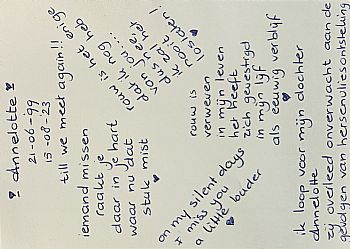 Annelotte
21-06-99
15-08-23
till we meet again!!
rouw is het enige
dat ik nog heb
van jou....
ik zal het
dus
nooit
loslaten!
iemand missen
raakt je
daar in je hart
waar nu dat
stuk mist
rouw is
verweven
in mijn leven
het heeft
zich gevestigd
in mijn lijf
als eeuwig verblijf
on my silent days
I miss you
a little louder
ik loop voor mijn dochter
Annelotte
zij overleed onverwacht aan de
gevolgen van hersenvliesontsteking